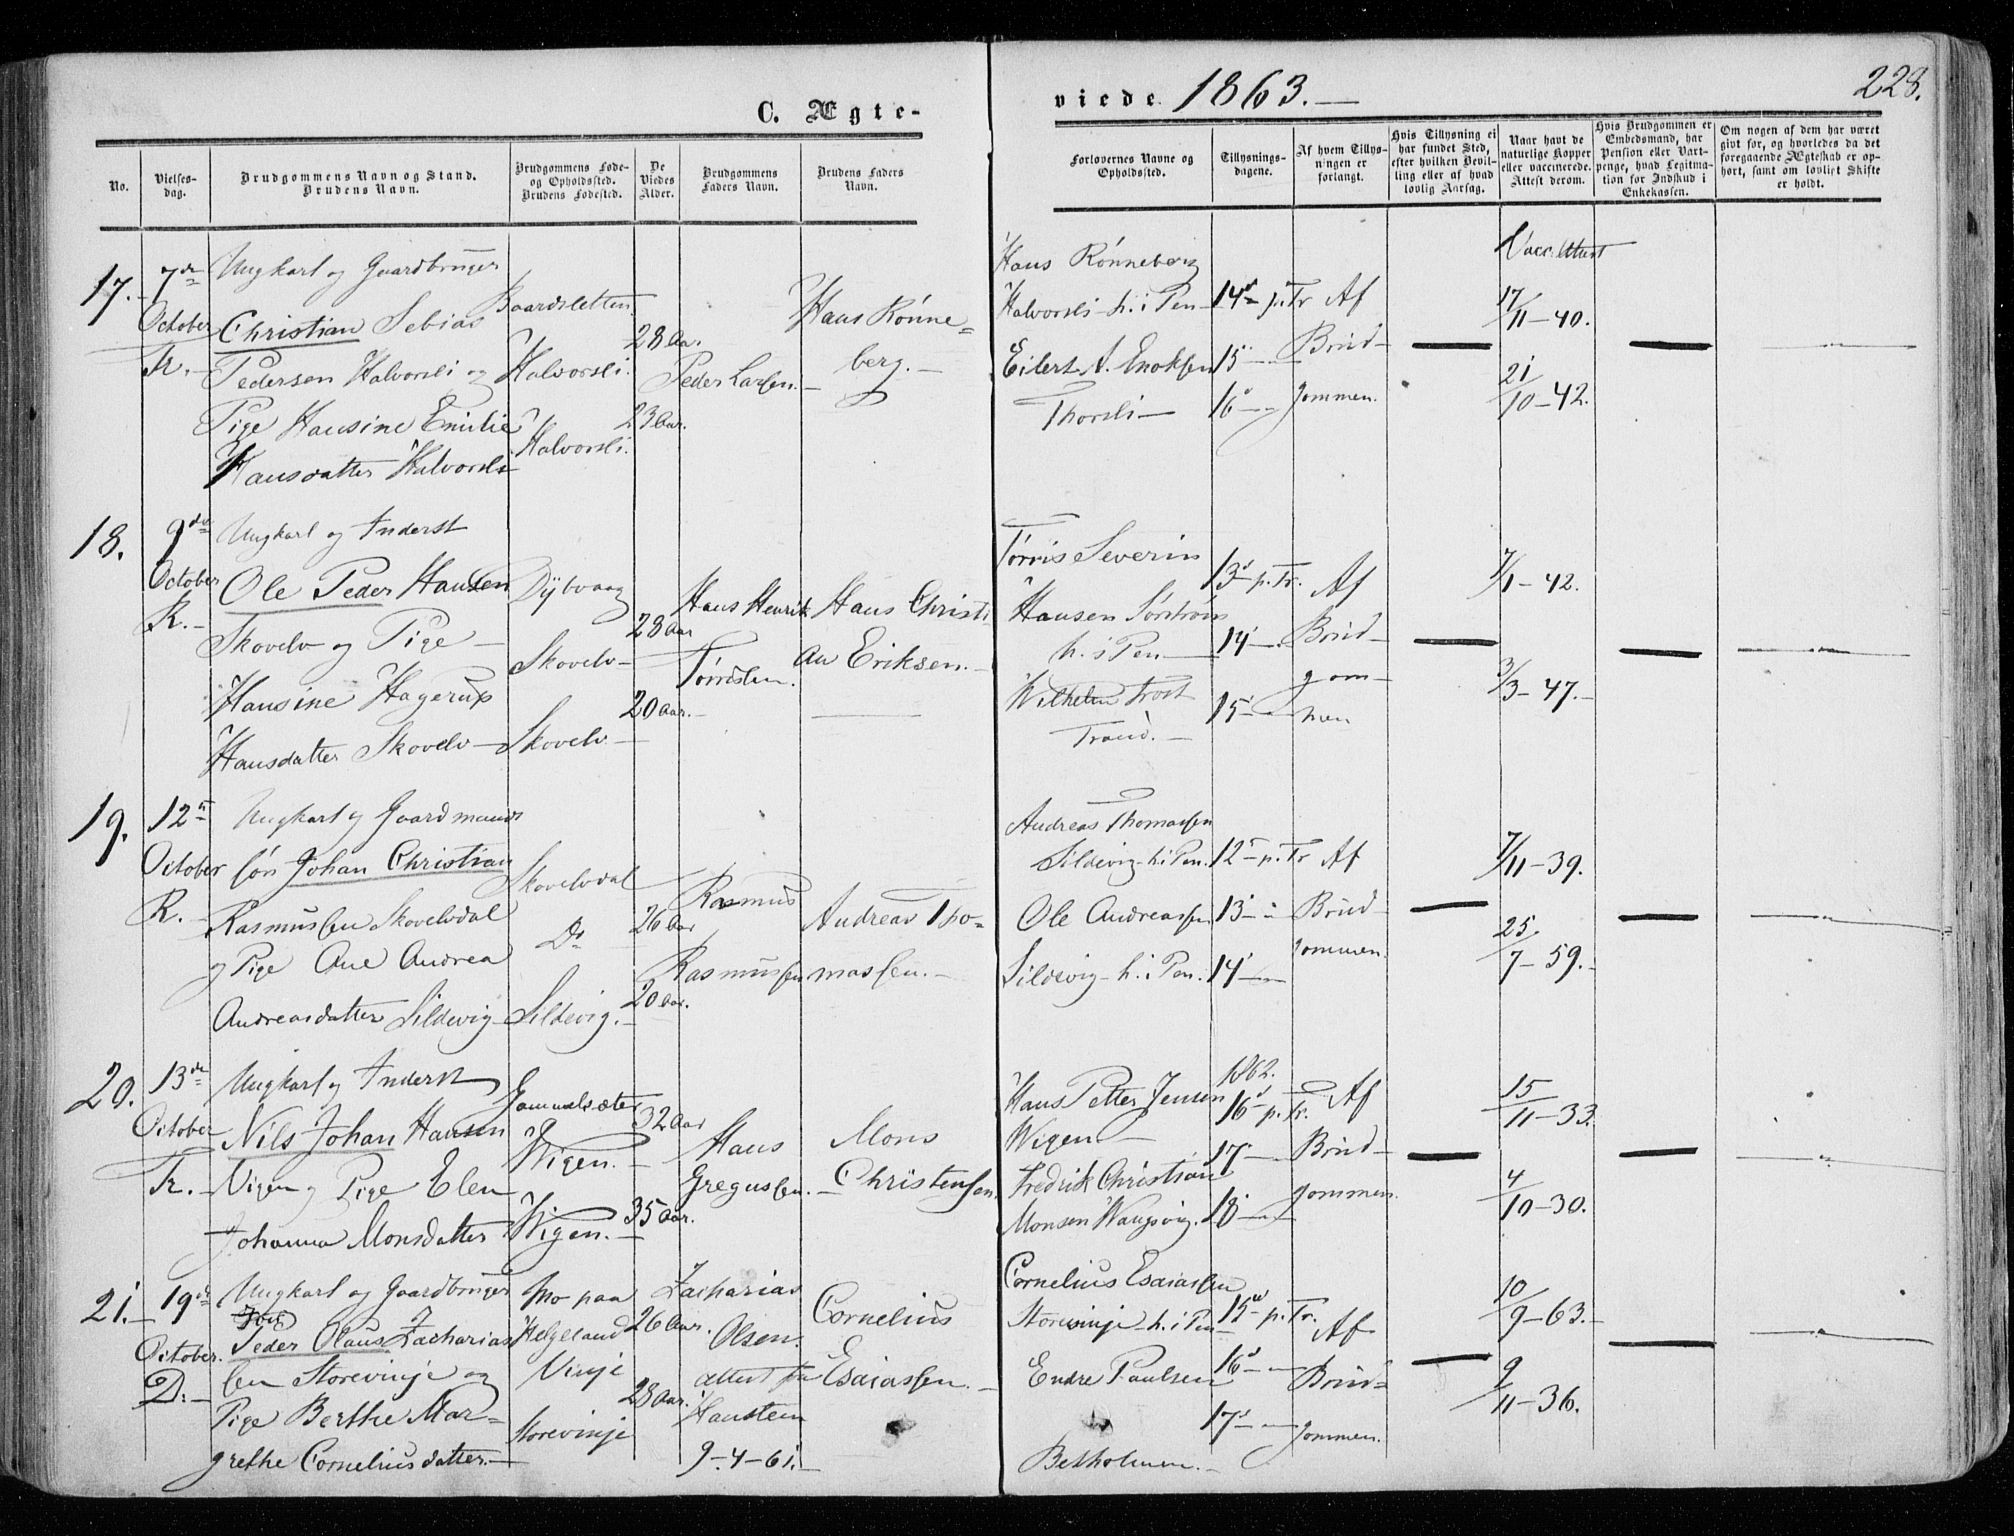 C. Ægte-
viede 1863.—
228.
No.
Vielses-
dag.
Brudgommens Navn og Stand.
Brudens Navn.
Brudgommens Føde-
og Opholdssted.
Brudens Fødested.
De
Viedes
Alder.
Brudgommens
Faders Navn.
Brudens Faders
Navn.
Forlovernes Navne og
Opholdssted.
Tillysnings-
dagene.
Af hvem Tillys-
ningen er
forlangt.
Hvis Tillysning ei
har fundet Sted,
efter hvilken Bevil-
ling eller af hvad
lovlig Aarsag.
Naar havt de
naturlige Kopper
eller vaccinerede.
Attest derom.
Hvis Brudgommen er
Embedsmand, har
Pension eller Vart-
penge, hvad Legitima-
tion for Indskud i
Enkekassen.
Om nogen af dem har været
gift før, og hvorledes da det
foregaaende Ægteskab er op-
hørt, samt om lovligt Skifte
er holdt.
17.
7de
October
Tr.
Ungkarl og Gaardbruger
Christian Sebias
Pedersen Halvorsli og
Pige Hansine Emilie
Hansdatter Halvorsli
Baardsletten
Halvorsli.
Halvorsli.
28 Aar.
23 Aar.
Peder Larsen.
Hans Rønne=
berg.
Hans Rønneberg
Halvorsli h. i Pen
Eilert A. Enoksen
Thorsli
14de p. Tr
15
16
Af
Brud-
gommen.
Vacc. Attest
17/11-40.
21/10-42.
18.
9de
October
R.
Ungkarl og Inderst
Ole Peder Hansen
Skovelv og Pige
Hansine Hagerup
Hansdatter Skovelv
Dybvaag
Skovelv
Skovelv
28 Aar
20 Aar.
Hans Henrik
Tørrissen.
Hans Christi
an Eriksen.
Tørris Severin
Hansen Sørstrøm
h. i Pen
Wilhelm Frost
Trand.
13 p. Tr.
14
15
Af
Brud-
gom-
men
7/1-42.
3/3-47.
19.
12te
October
R.
Ungkarl og Gaardmands
søn Johan Christian
Rasmussen Skovelvdal
og Pige Ane Andrea
Andreasdatter Sildevig
Skovelvdal
Do
Sildevig.
26 Aar
20 Aar.
Rasmus
Rasmussen
Andreas Tho=
massen.
Andreas Thomassen
Sildevig h. i Pen.
Ole Andreassen
Sildevig h. i Pen.
12te p. Tr
13
14
Af
Brud-
gommen.
7/11-39.
25/7-59.
20.
13de
October
Tr.
Ungkarl og Inderst
Nils Johan Hansen
Vigen og Pige Elen
Johanna Monsdatter
Gammelsæter
Wigen.
Wigen.
32 Aar
35 Aar.
Hans
Gregussen.
Mons
Christensen
Hans Petter Jensen
Wigen
Fredrik Christian
Monsen Wangsvig.
1862.
16 p. Tr.
17
18
Af
Brud-
gommen.
15/11-33.
4/10-30.
21.
19de
October.
D.
Ungkarl og Gaardbruger
Peder Olaus Zacharias
sen Storevinje og
Pige Berthe Mar=
grethe Corneliusdatter.
Mo paa
Helgeland
Vinje
Storevinje
26 Aar.
28 Aar.
Zacharias
Olsen.
attest fra
Hanstein
9-4-61.
Cornelius
Esaiassen.
Cornelius Esaiassen
Storevinje h. i Pen
Endre Paulsen
Betholmen.
15de p. Tr.
16
17
Af
Brud=
gommen.
10/9-63.
9/11-36.